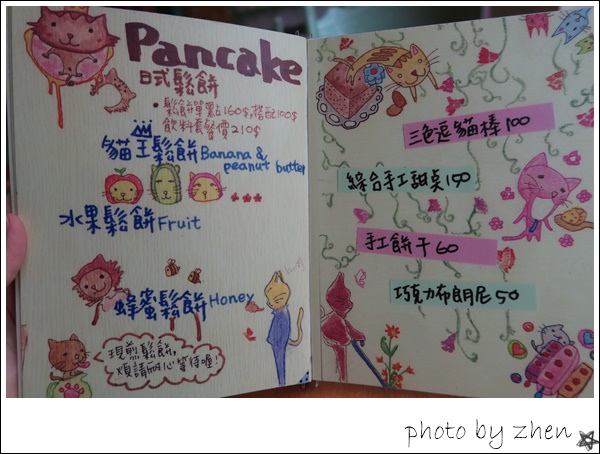 Pancake
日式鬆餅
•鬆餅單點160$,搭配100$
飲料套餐價210$
貓王鬆餅Banana &
peanut butter
水果鬆餅Fruit
蜂蜜鬆餅Honey
現煎鬆餅,
煩請耐心等待喔!
三色逗貓棒100
綜合手工甜點150
手工餅干60
巧克力布朗尼50
photo by zhen